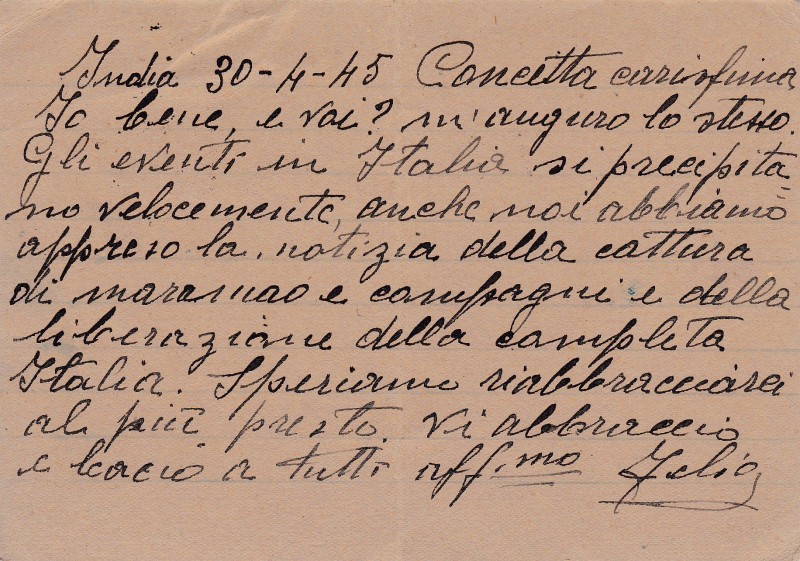 India 30-4-45 Concetta carissima
Io bene, e voi? m'auguro lo stesso.
Gli eventi in Italia si precipita=
no velocemente, anche noi abbiamo
appreso la notizia della cattura
di maramao e compagni e della
liberazione della completa
Italia. Speriamo riabbracciarci
al più presto. Vi abbraccio
e bacio a tutti aff.mo